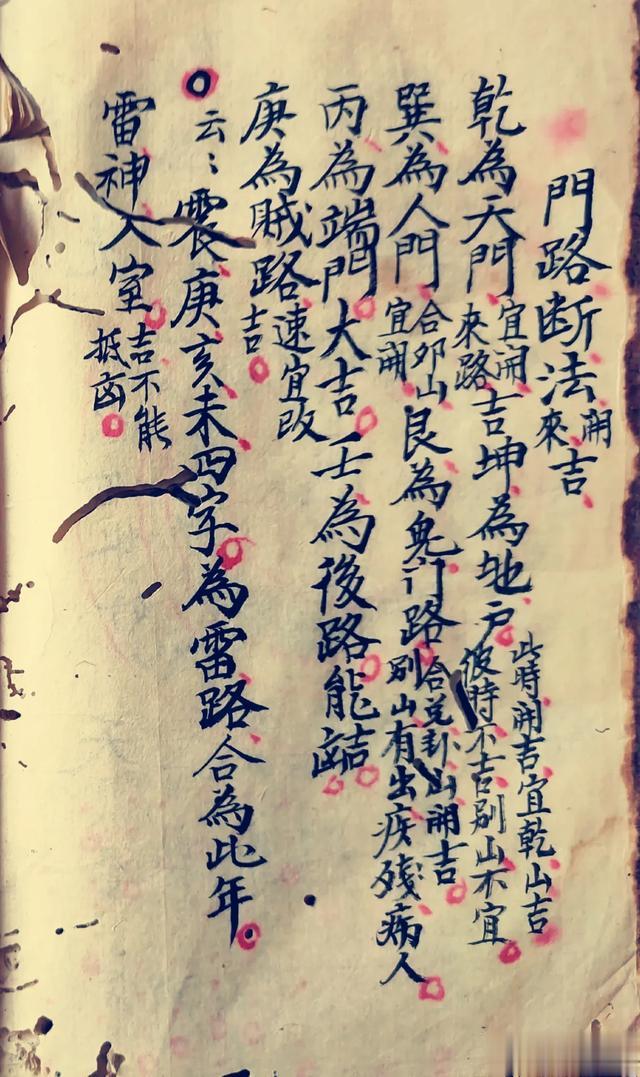 門路断法開來吉
乾為天門宜開來路吉坤為地户此時開吉宜乾山吉彼時不吉别山不宜
巽為人門合卯山宜開艮為鬼门路合兑卦山開吉别山有出疾残病人
丙為端門大吉壬為後路能吉
庚為贼路吉速宜改
云:震庚亥未四字為雷路合為此年
雷神入室吉不能抵凶